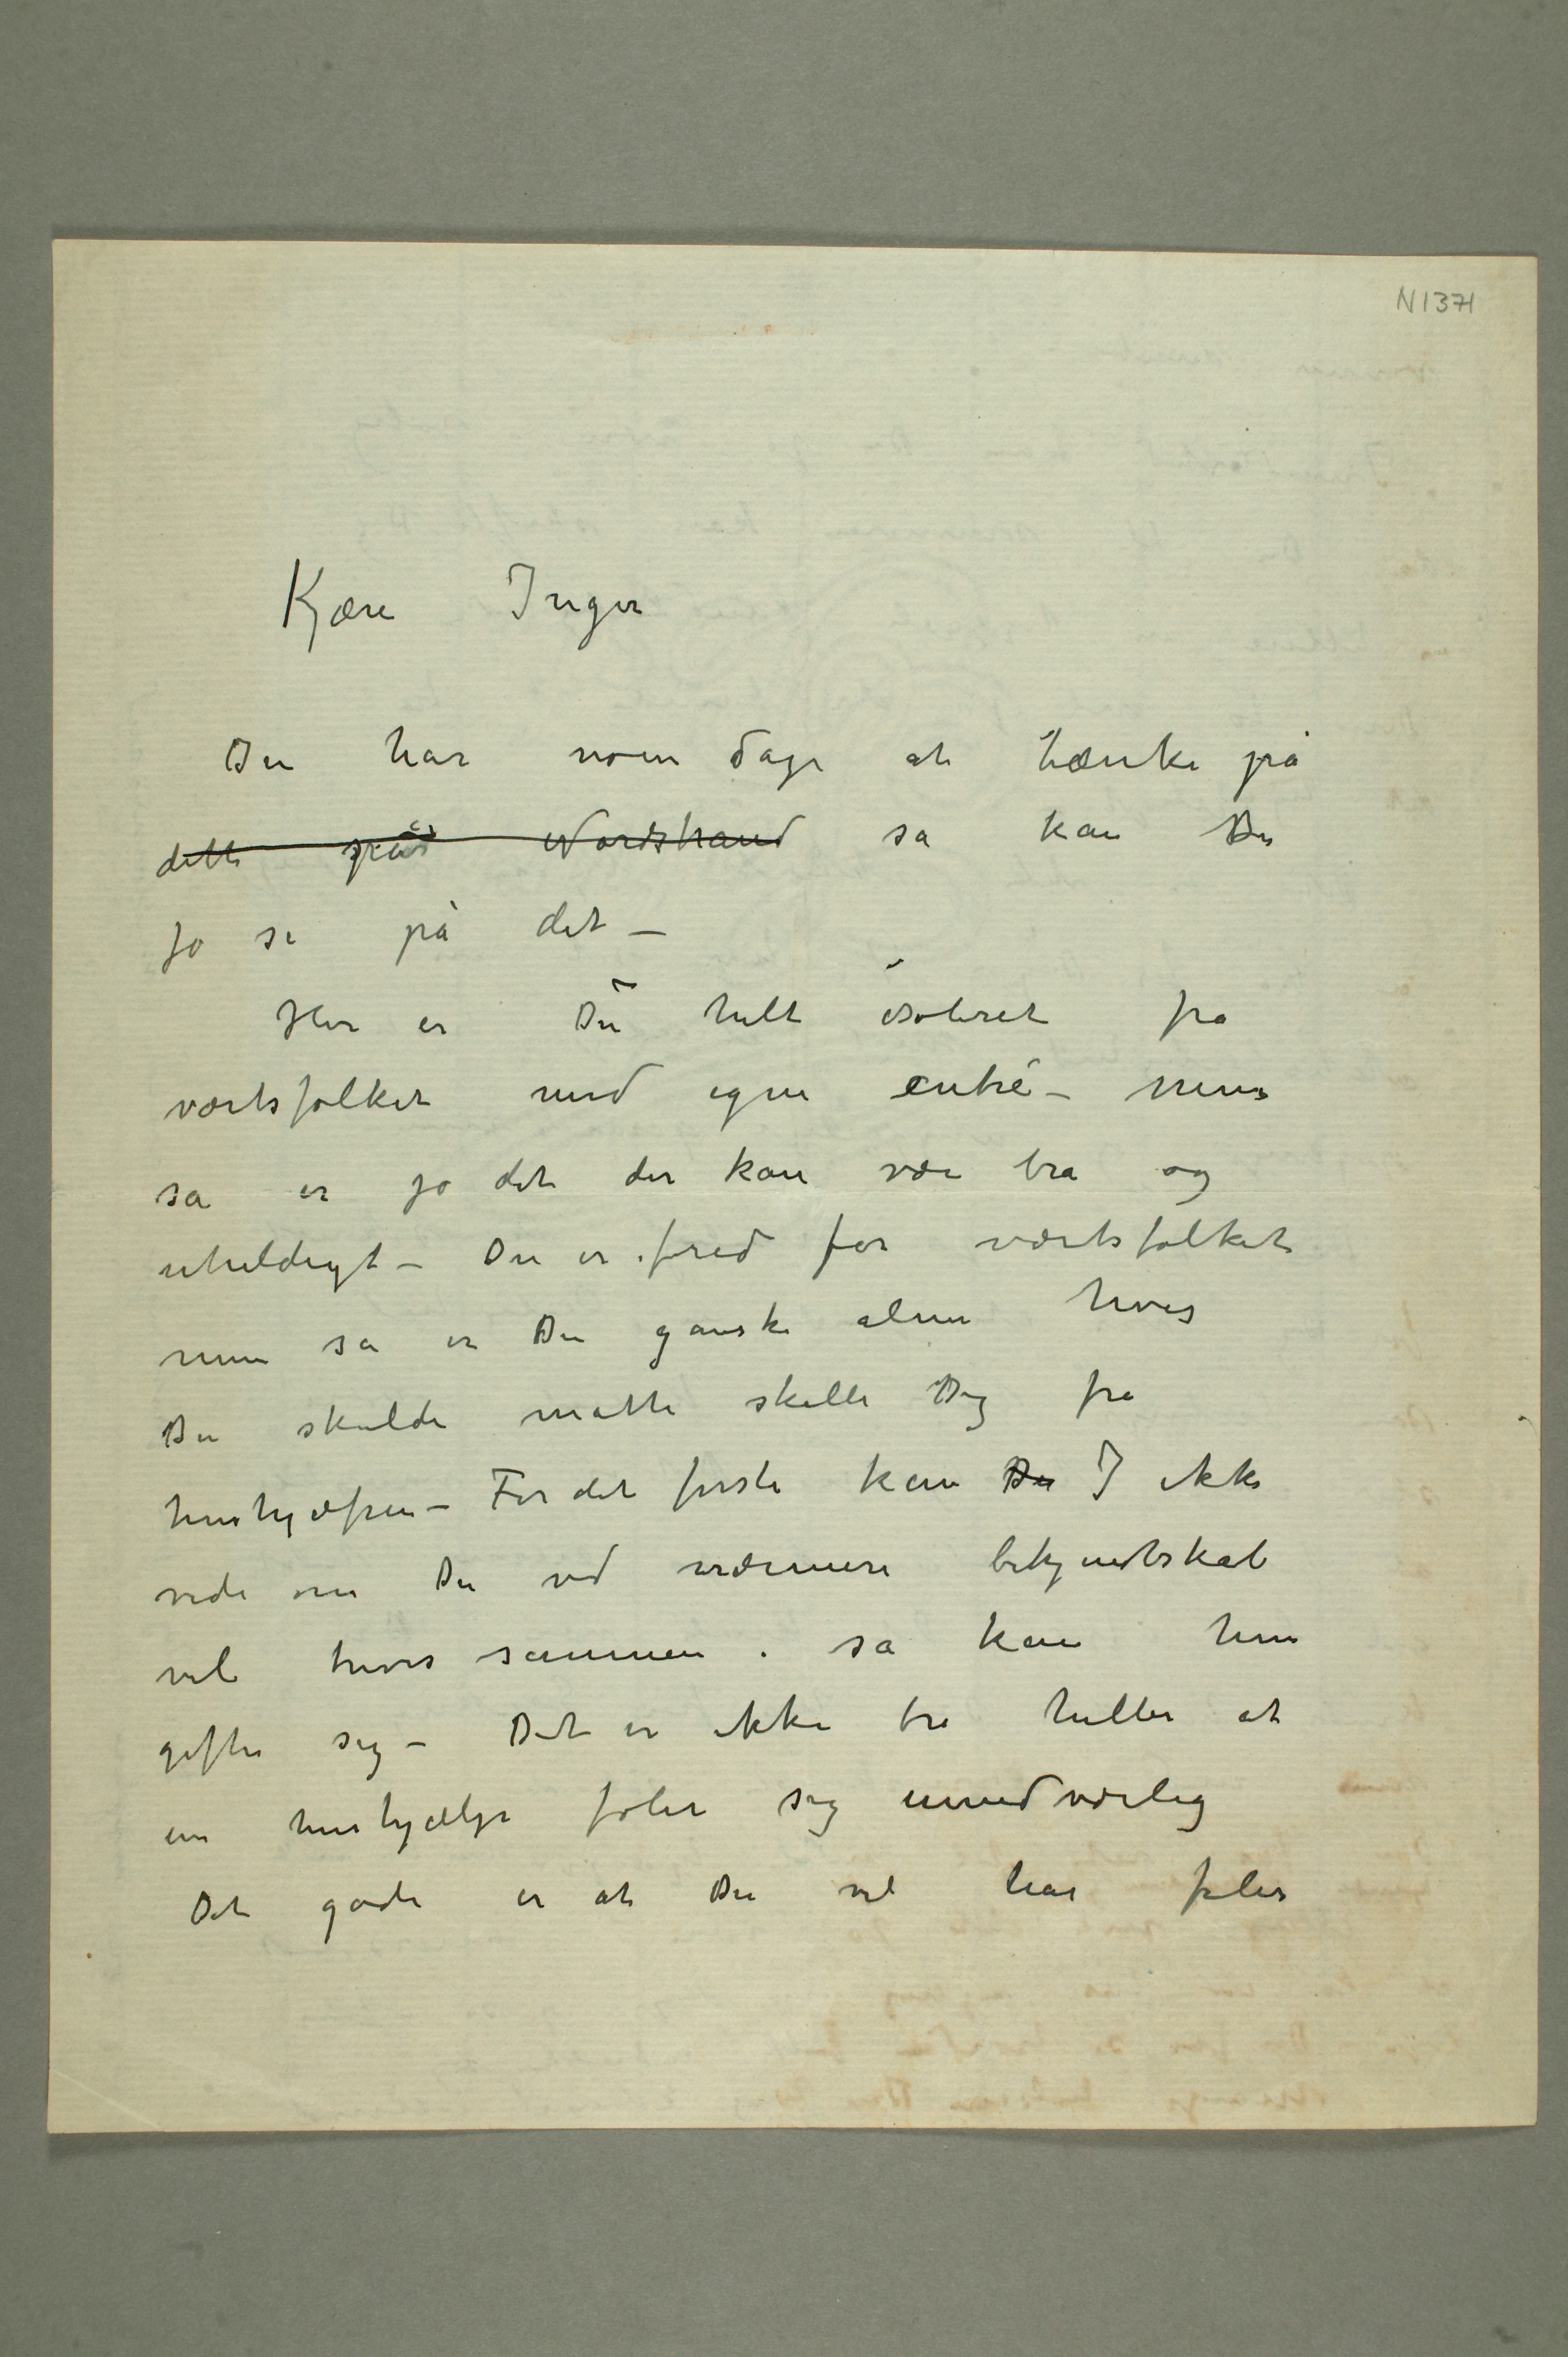 N1371
Kjære Inger
Du har noen dage at tænke på
dette på Nordstrand så kan Du
jo se på det –
Her er Du helt isoleret fra
værtsfolket med egen entré – men
så er jo det der kan være bra og
uheldigt – Du er i fred for værtsfolket
men så er Du ganske alene hvis
Du skulde måtte skille Dig fra
hushjælpen – For det første kan Du I ikke
vide om Du ved nærmere bekjendtskab
vil trives sammen. så kan hun
gifte sig – Det er ikke bra heller at
en hushjælp føler sig uundværlig
Det gode er at Du vel har føler